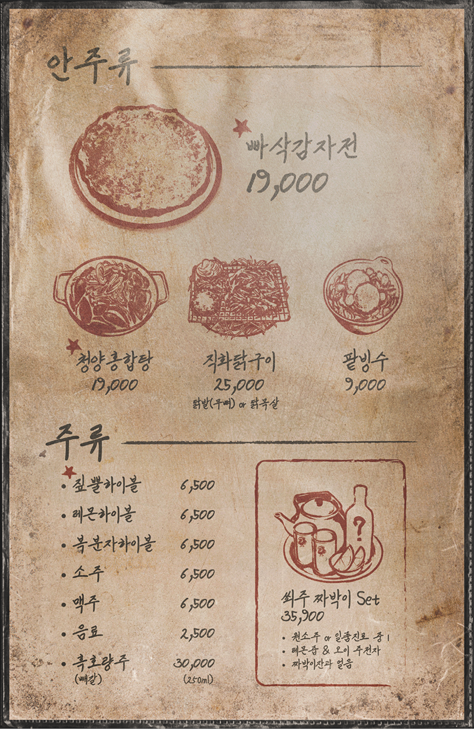 안주류
빠삭감자전
19,000
청양홍합탕
19,000
직화닭구이
25,000
닭발(무뼈) or 닭목살
팥빙수
9,000
주류
• 짚뿔하이볼 6,500
• 레몬하이볼 6,500
• 복분자하이볼 6,500
• 소주 6,500
• 맥주 6,500
• 음료 2,500
• 흑호랑주 30,000
(빼갈) (250ml)
?
쐬주 짜박이 Set
35,900
• 원소주 or 일품진로 중 1
• 레몬즙 & 오이 주전자
• 짜박이잔과 얼음